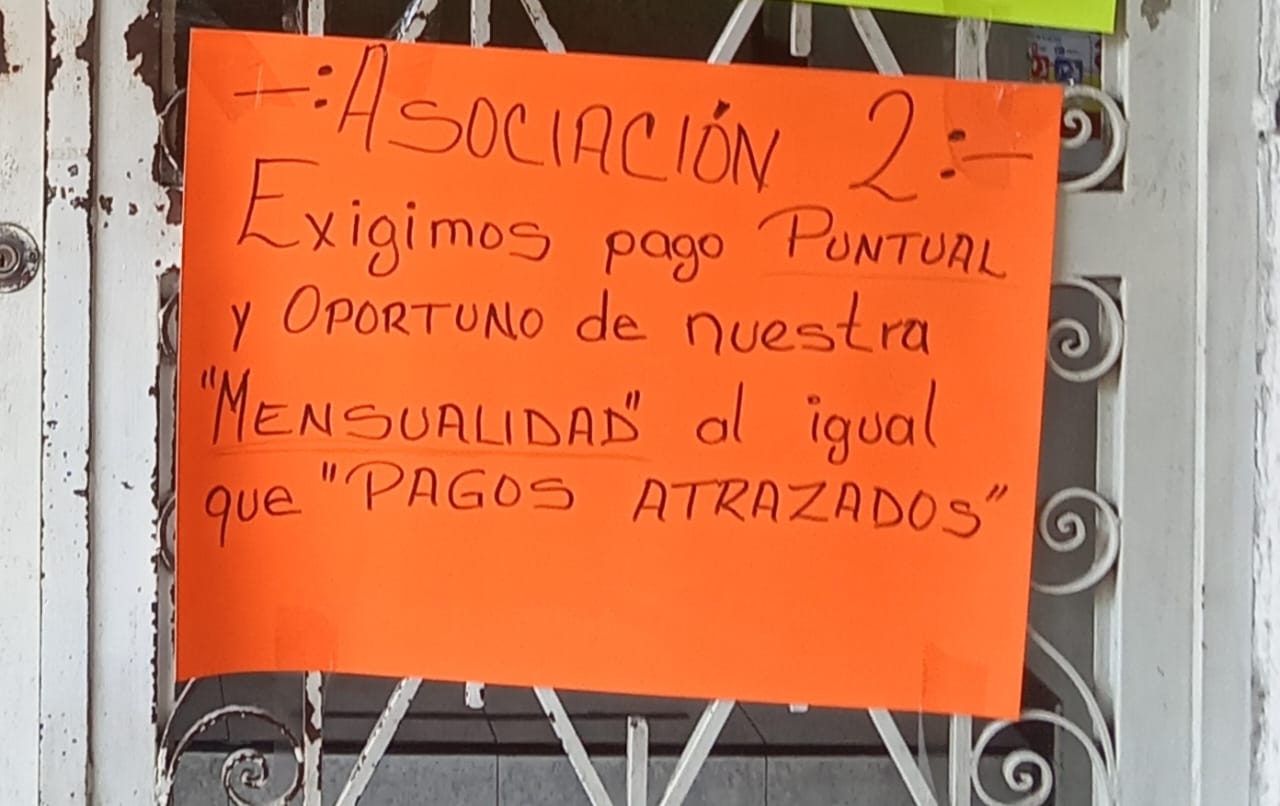 -:ASOCIACIÓN 2:-
Exigimos pago PUNTUAL
y OPORTUNO de nuestra
"MENSUALIDAD" al igual
que "PAGOS ATRAZADOS"